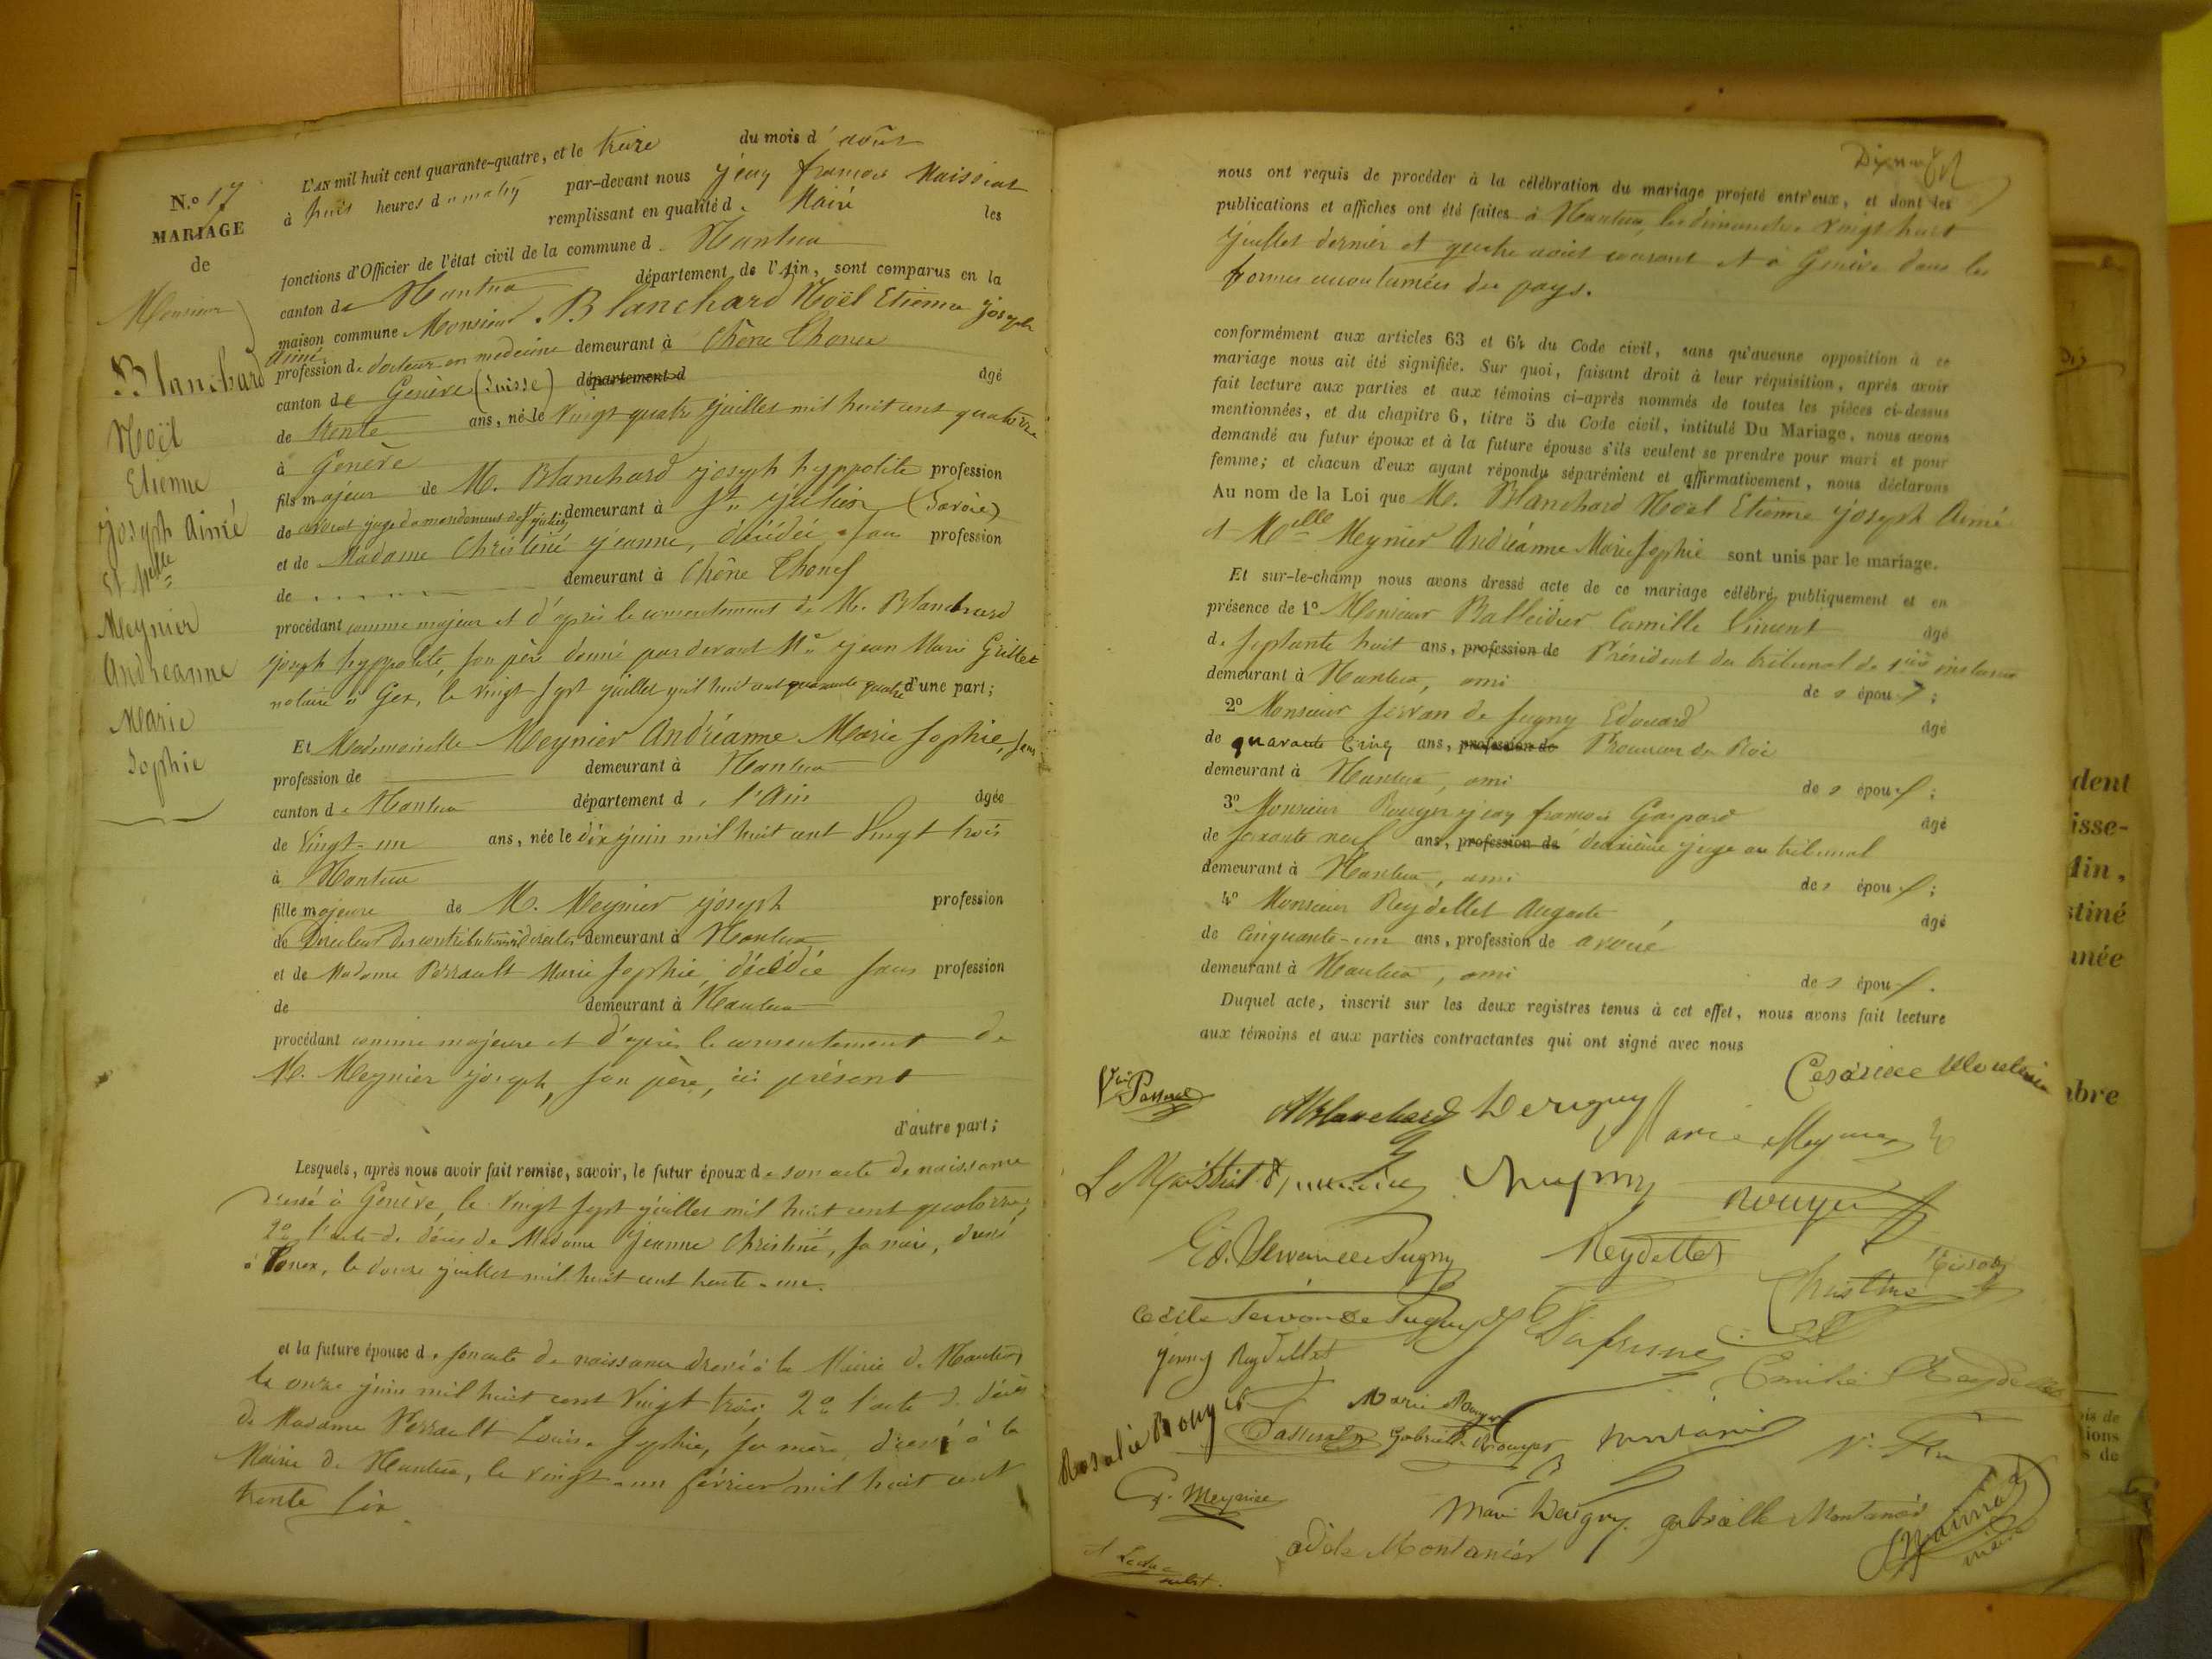 N.o 17
MARIAGE
de
Monsieur
Blanchard
Noël
Etienne
joseph Aimé
Et Melle
Meynier
Andréanne
Marie
Sophie
L'AN mil huit cent quarante-quatre, et le treize du mois d'août
à huit heures du matin par-devant nous jean françois Maissiat
remplissant en qualité de Maire les
fonctions d'Officier de l'état civil de la commune de Nantua
canton de Nantua département de l'Ain, sont comparus en la
maison commune Monsieur Blanchard Noël Etienne joseph
aimé
profession de docteur en medecine demeurant à Chêne Thonex
canton de Genève (Suisse) département d âgé
de trente ans, né le vingt quatre juillet mil huit cent quatorze
à Genève
fils majeur de M. Blanchard joseph hyppolite profession
de avocat juge du mandement de St julien demeurant à St julien (Savoie)
et de Madame Christiné jeanne, décédée sans profession
de demeurant à Chêne Thonex
procédant comme majeur et d'après le consentement de M. Blanchard
joseph hyppolite, son père donné pardevant Me jean Marie Grillet
notaire à Gex, le vingt sept juillet mil huit cent quarante quatre d'une part;
Et Mademoiselle Meynier Andréanne Marie Sophie, sans
profession de demeurant à Nantua
canton de Nantua département de l'Ain âgée
de vingt-un ans, née le dix juin mil huit cent vingt trois
à Nantua
fille majeure de M. Meynier joseph profession
de Directeur des contributions directes demeurant à Nantua
et de Madame Perrault Marie Sophie, décédée sans profession
de demeurant à Nantua
procédant comme majeure et d'après le consentement de
M. Meynier joseph, son père, ici présent
d'autre part;
Lesquels, après nous avoir fait remise, savoir, le futur époux de son acte de naissance
dressé à Genève, le vingt sept juillet mil huit cent quatorze,
2o l'acte de décès de Madame jeanne Christiné, sa mère, dressé
à Tonex, le douze juillet mil huit cent trente-un.
et la future épouse de son acte de naissance dressé à la Mairie de Nantua
le onze juin mil huit cent vingt trois, 2o l'acte de décès
de Madame Perrault Louise Sophie, sa mère, dressé à la
Mairie de Nantua, le vingt-un février mil huit cent
trente six.
nous ont requis de procéder à la célébration du mariage projeté entr'eux, et dont les
publications et affiches ont été faites à Nantua, les dimanches vingt huit
juillet dernier et quatre août courant et à Genève dans les
formes accoutumées du pays.
conformément aux articles 63 et 64 du Code civil, sans qu'aucune opposition à ce
mariage nous ait été signifiée. Sur quoi, faisant droit à leur réquisition, après avoir
fait lecture aux parties et aux témoins ci-après nommés de toutes les pièces ci-dessus
mentionnées, et du chapitre 6, titre 5 du Code civil, intitulé Du Mariage, nous avons
demandé au futur époux et à la future épouse s'ils veulent se prendre pour mari et pour
femme; et chacun d'eux ayant répondu séparément et affirmativement, nous déclarons
Au nom de la Loi que M. Blanchard Noël Etienne joseph Aimé
et Melle Meynier Andréanne Marie Sophie sont unis par le mariage.
Et sur-le-champ nous avons dressé acte de ce mariage célébré publiquement et en
présence de 1o Monsieur Balleidier Camille Vincent âgé
de septante huit ans, profession de Président du tribunal de 1ère instance
demeurant à Nantua, ami des époux;
2o Monsieur Servan de Sugny Edouard âgé
de quarante cinq ans, profession de Procureur du Roi
demeurant à Nantua, ami des époux;
3o Monsieur Rouyer jean françois Gaspard âgé
de soixante neuf ans, profession de deuxième juge au tribunal
demeurant à Nantua, ami des époux;
4o Monsieur Reydellet Auguste, âgé
de cinquante-un ans, profession de avoué
demeurant à Nantua, ami des époux.
Duquel acte, inscrit sur les deux registres tenus à cet effet, nous avons fait lecture
aux témoins et aux parties contractantes qui ont signé avec nous
Blanchard Derigny Marie Meynier
Rouyer
Ed. Servan de Sugny Reydellet
Christiné
Cécile Servan de Sugny
jenny Reydellet
Emilie Reydellet
Rosalie Rouyer Marie Rouyer
Gabrielle Rouyer Montanier
Meynier
Marie Derigny Gabrielle Montanier
Adèle Montanier
maire
dent
isse-
Ain,
stiné
nnée
bre